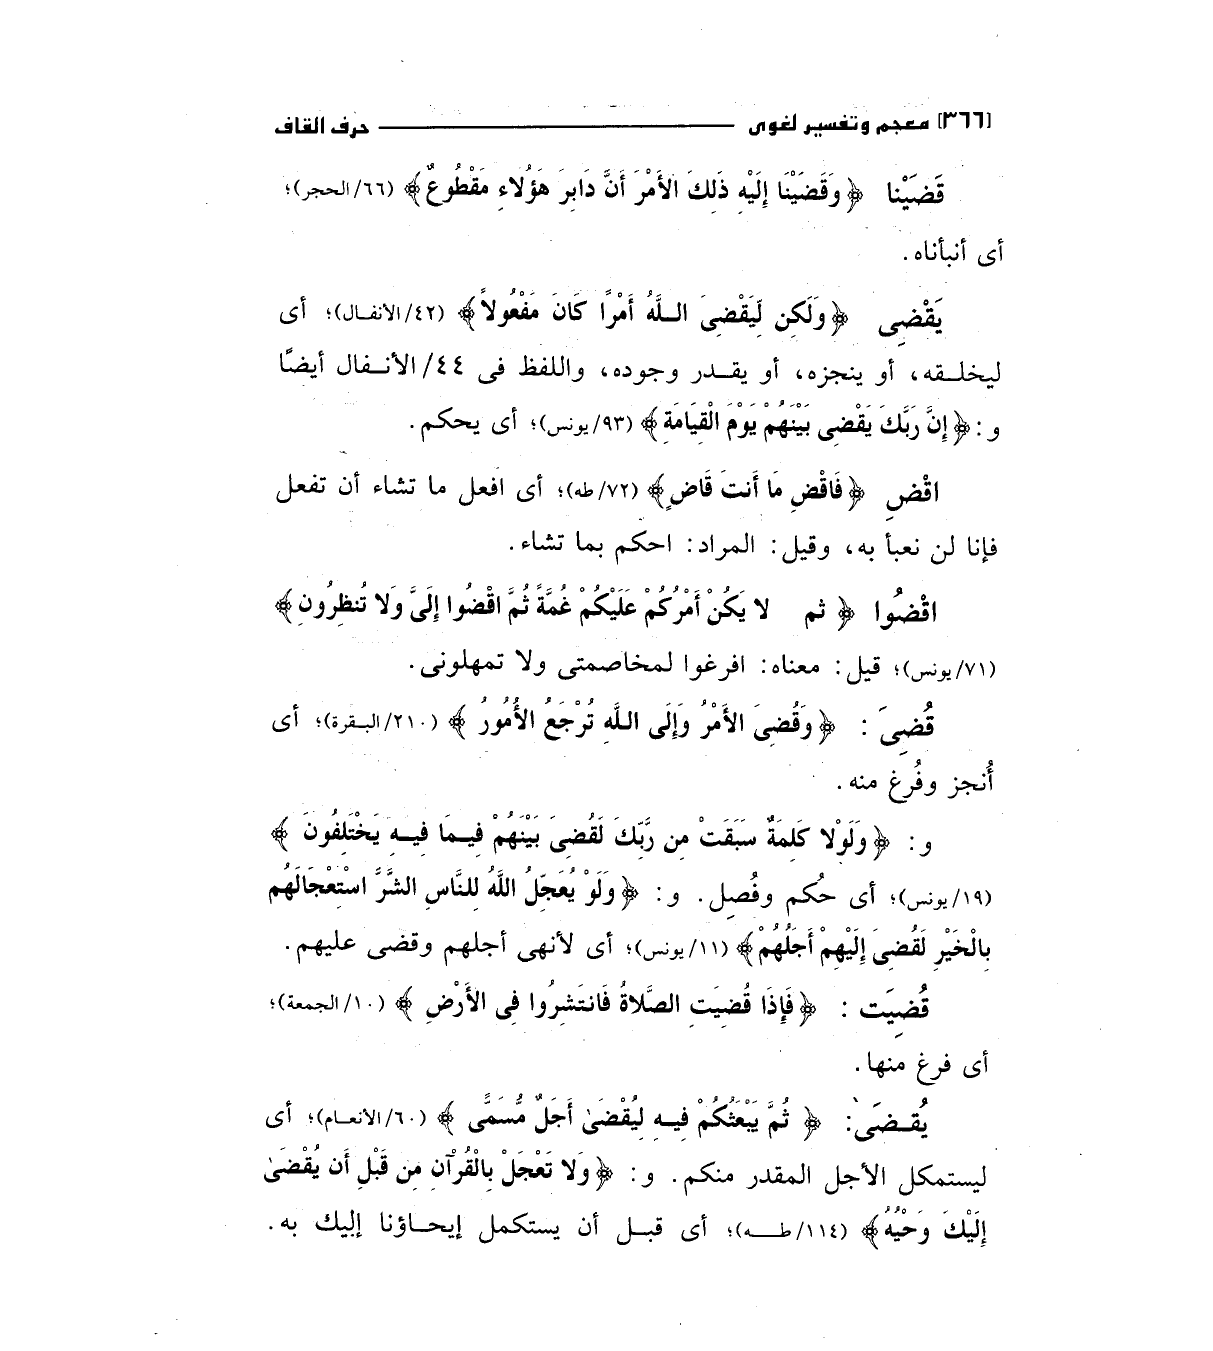 [٣٦٦] معجم وتفسير لغوى ــــــــــ حرف القاف
قَضَيْنا ﴿وَقَضَيْنَا إِلَيْهِ ذَلِكَ الأَمْرَ أَنَّ دَابِرَ هَؤُلاءِ مَقْطُوعٌ﴾ (٦٦/الحجر)؛
أى أنبأناه.
يَقْضِى ﴿وَلَكِن لِّيَقْضِىَ اللَّهُ أَمْرًا كَانَ مَفْعُولاً﴾ (٤٢/الأنفال)؛ أى
ليخلقه، أو ينجزه، أو يقدر وجوده، واللفظ فى ٤٤/الأنفال أيضًا
و: ﴿إِنَّ رَبَّكَ يَقْضِى بَيْنَهُمْ يَوْمَ الْقِيَامَةِ﴾ (٩٣/يونس)؛ أى يحكم.
اقْضِ ﴿فَاقْضِ مَا أَنتَ قَاضٍ﴾ (٧٢/طه)؛ أى افعل ما تشاء أن تفعل
فإنا لن نعبأ به، وقيل: المراد: احكم بما تشاء.
اقْضُوا ﴿ ثم لا يَكُنْ أَمْرُكُمْ عَلَيْكُمْ غُمَّةً ثُمَّ اقْضُوا إِلَىَّ وَلا تُنظِرُونِ﴾
(٧١/يونس)؛ قيل: معناه: افرغوا لمخاصمتى ولا تمهلونى.
قُضِىَ : ﴿وَقُضِىَ الأَمْرُ وَإِلَى اللَّهِ تُرْجَعُ الأُمُورُ ﴾ (٢١٠/البقرة)؛ أى
أُنجز وفُرغ منه.
و: ﴿وَلَوْلا كَلِمَةٌ سَبَقَتْ مِن رَّبِّكَ لَقُضِىَ بَيْنَهُمْ فِيمَا فِيهِ يَخْتَلِفُونَ ﴾
(١٩/يونس)؛ أى حُكم وفُصِل. و: ﴿وَلَوْ يُعَجِّلُ اللَّهُ لِلنَّاسِ الشَّرَّ اسْتِعْجَالَهُم
بِالْخَيْرِ لَقُضِىَ إِلَيْهِمْ أَجَلُهُمْ﴾ (١١/يونس)؛ أى لأنهى أجلهم وقضى عليهم.
قُضِيَت : ﴿فَإِذَا قُضِيَتِ الصَّلاةُ فَانتَشِرُوا فِى الأَرْضِ ﴾ (١٠/الجمعة)؛
أى فرغ منها.
يُقضَىٰ: ﴿ ثُمَّ يَبْعَثُكُمْ فِيهِ لِيُقْضَىٰ أَجَلٌ مُّسَمًّى ﴾ (٦٠/الأنعام)؛ أى
ليستمكل الأجل المقدر منكم. و: ﴿وَلا تَعْجَلْ بِالْقُرْآنِ مِن قَبْلِ أَن يُقْضَىٰ
إِلَيْكَ وَحْيُهُ﴾ (١١٤/طه)؛ أى قبل أن يستكمل إيحاؤنا إليك به.